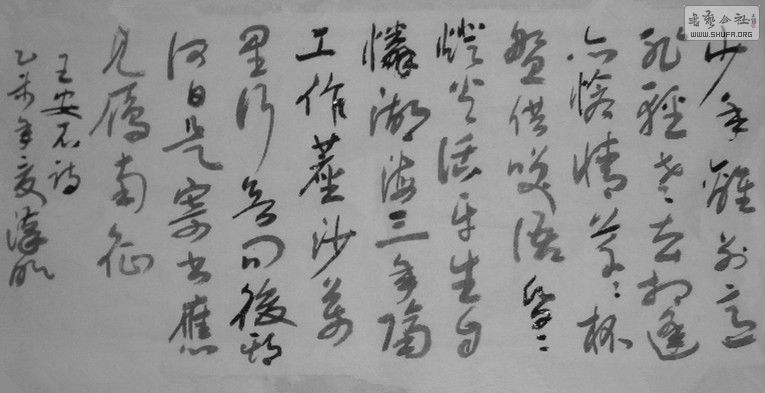 少年離別意
非輕老去相逢
亦愴情草草杯
盤供笑語昏昏
燈火話平生自
憐湖海三年隔
又作塵沙萬
里行欲問後期
何日是寄書應
見雁南征
王安石詩
乙未年夏
書藝公社
WWW.SHUFA.ORG